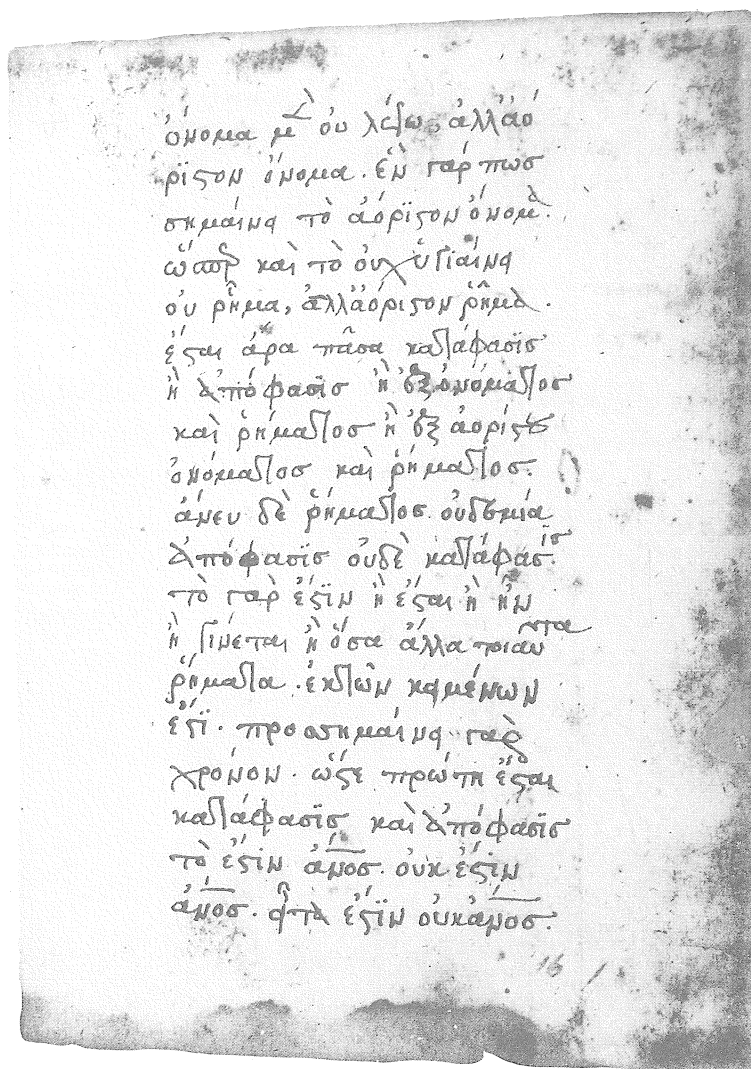 ὄνομα μὲν οὐ λέγω, ἀλλ' ἀό
ρϊστον ὄνομα. ἓν γάρ πως
σημαίνει τὸ ἀόρϊστον ὄνομα.
ὥσπερ καὶ τὸ οὐχ ὑγιαίνει
οὐ ῥῆμα, ἀλλ' ἀόριστον ῥῆμα.
ἔσται ἄρα πᾶσα κατάφασϊς
ἢ ἀπόφασϊς ἢ ἐξ ὀνόματος
καὶ ῥήματος ἢ ἐξ ἀορίστου
ὀνόματος καὶ ῥήματος.
ἄνευ δὲ ῥήματος οὐδεμία
ἀπόφασϊς οὐδὲ κατάφασϊς.
τὸ γὰρ ἔστϊν ἢ ἔσται ἢ ἦν
ἢ γίνεται ἢ ὅσα ἄλλα τοιαῦτα
ῥήματα. ἐκ τῶν κειμένων
ἐστϊ. προσσημαίνει γὰρ
χρόνον. ὥστε πρώτη ἔσται
κατάφασϊς καὶ ἀπόφασϊς
τὸ ἔστϊν ἄνος. οὐκ ἔστϊν
ἄνος. εἶτα ἔστϊν οὐκ ἄνος.
16